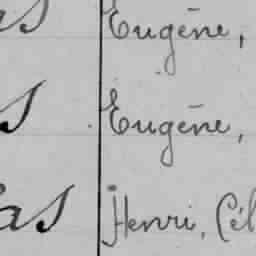 as Eugène,
s Eugène,
as Henri, Cél